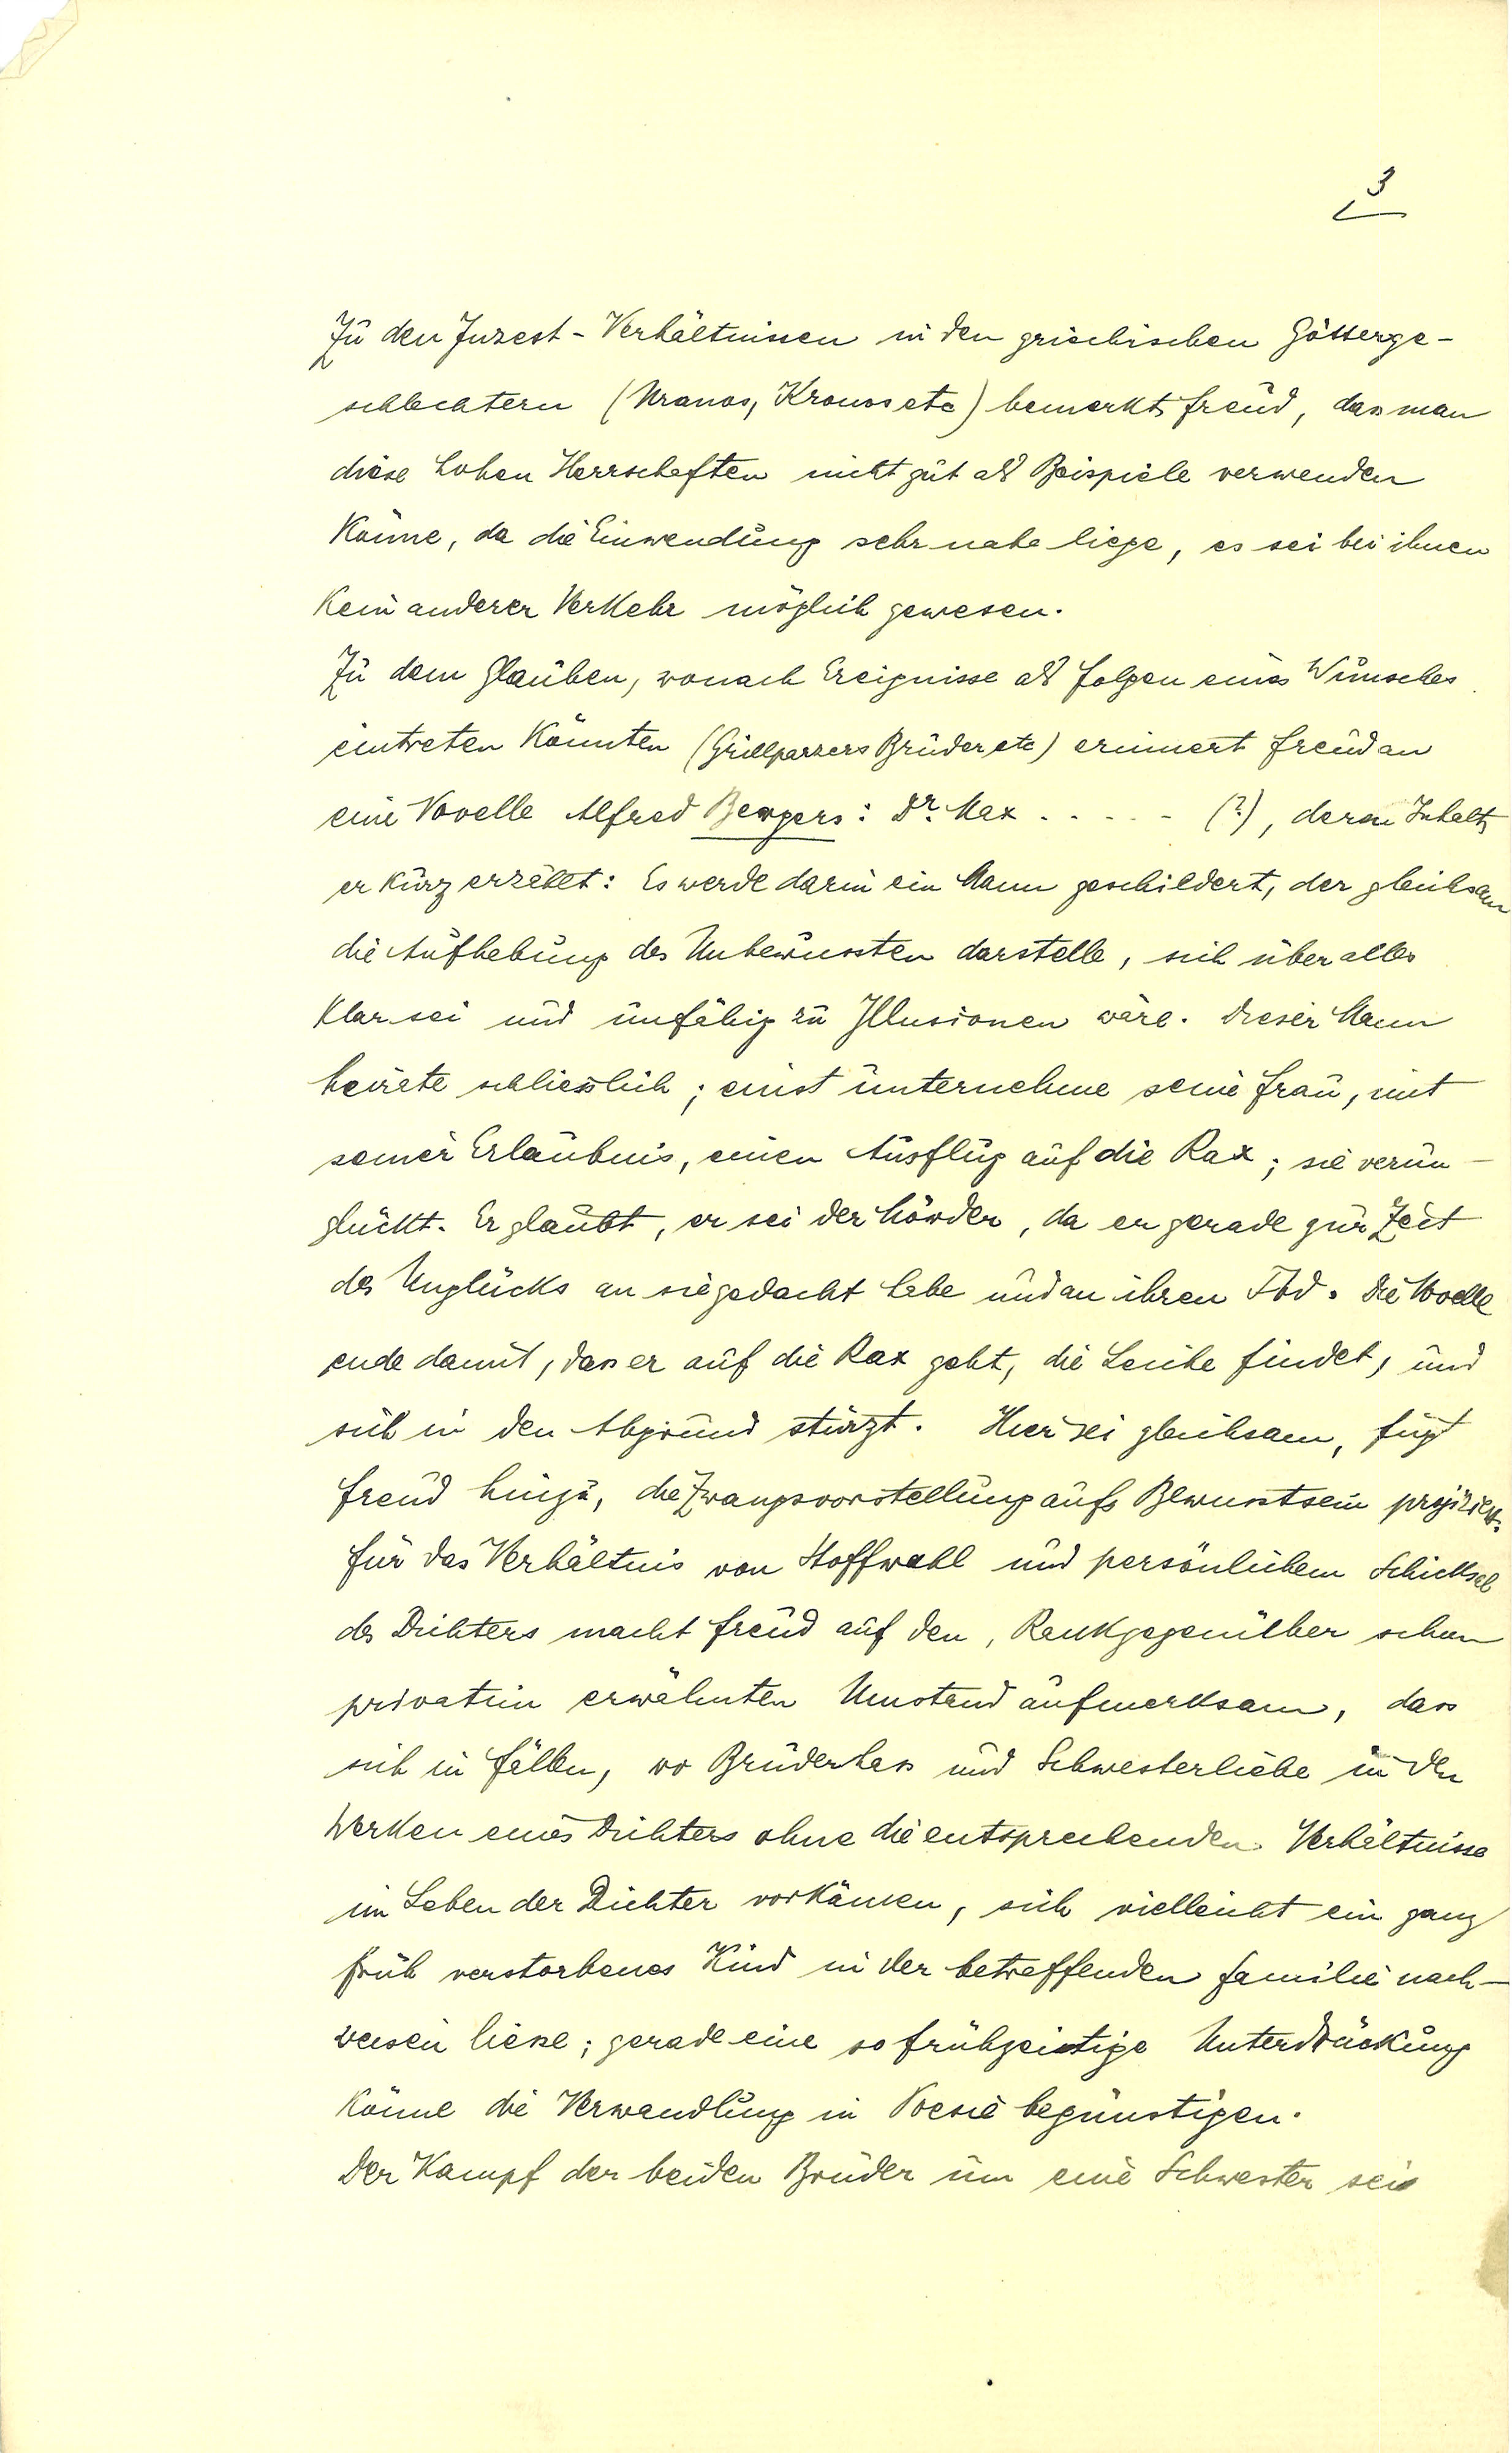 3
Zu den Inzest-Verhältnissen in den griechischen Götterge-
schlechtern (Uranos, Kronos etc) bemerkt Freud, dass man
diese hohen Herrschaften nicht gut als Beispiele verwenden
könne, da die Einwendung sehr nahe liege, es sei bei ihnen
kein anderer Verkehr möglich gewesen.
Zu dem Glauben, wonach Ereignisse als Folgen eines Wunsches
eintreten könnten (Grillparzers Brüder etc) erinnert Freud an
eine Novelle Alfred Bergers: Dr. Max - - - - - (?), deren Inhalt
er kurz erzählt: Es werde darin ein Mann geschildert, der gleichsam
die Aufhebung des Unbewussten darstelle, sich über alles
klar sei und unfähig zu Illusionen wäre. Dieser Mann
heirate schliesslich; einst unternehme seine Frau, mit
seiner Erlaubnis, einen Ausflug auf die Rax; sie verun-
glückt. Er glaubt, er sei der Mörder, da er gerade zur Zeit
des Unglücks an sie gedacht habe und an ihren Tod. Die Novelle
ende damit, dass er auf die Rax geht, die Leiche findet, und
sich in den Abgrund stürzt. Hier sei gleichsam, fügt
Freud hinzu, die Zwangsvorstellung aufs Bewusstsein projiziert.
Für das Verhältnis von Stoffwahl und persönlichem Schicksal
des Dichters macht Freud auf den, Rank gegenüber schon
privatim erwähnten Umstand aufmerksam, dass
sich in Fällen, wo Bruderhass und Schwesterliebe in den
Werken eines Dichters ohne die entsprechenden Verhältnisse
im Leben der Dichter vorkämen, sich vielleicht ein ganz
früh verstorbenes Kind in der betreffenden Familie nach-
weisen liesse; gerade eine so frühzeitige Unterdrückung
könne die Verwandlung in Poesie begünstigen.
Der Kampf der beiden Brüder um eine Schwester sei